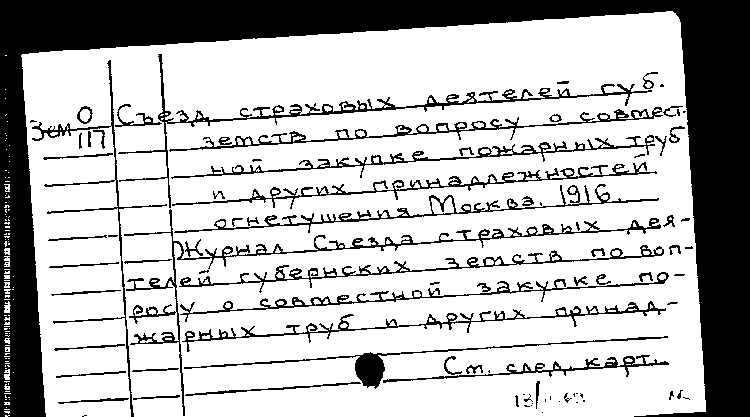 Зем О/117
Съезд страховых деятелей губ.
земств по вопросу о совмест-
ной закупке пожарных труб
и других принадлежностей
огнетушения. Москва. 1916.
Журнал Съезда страховых дея-
телей губернских земств по воп-
росу о совместной закупке по-
жарных труб и других принад-
См. след. карт.